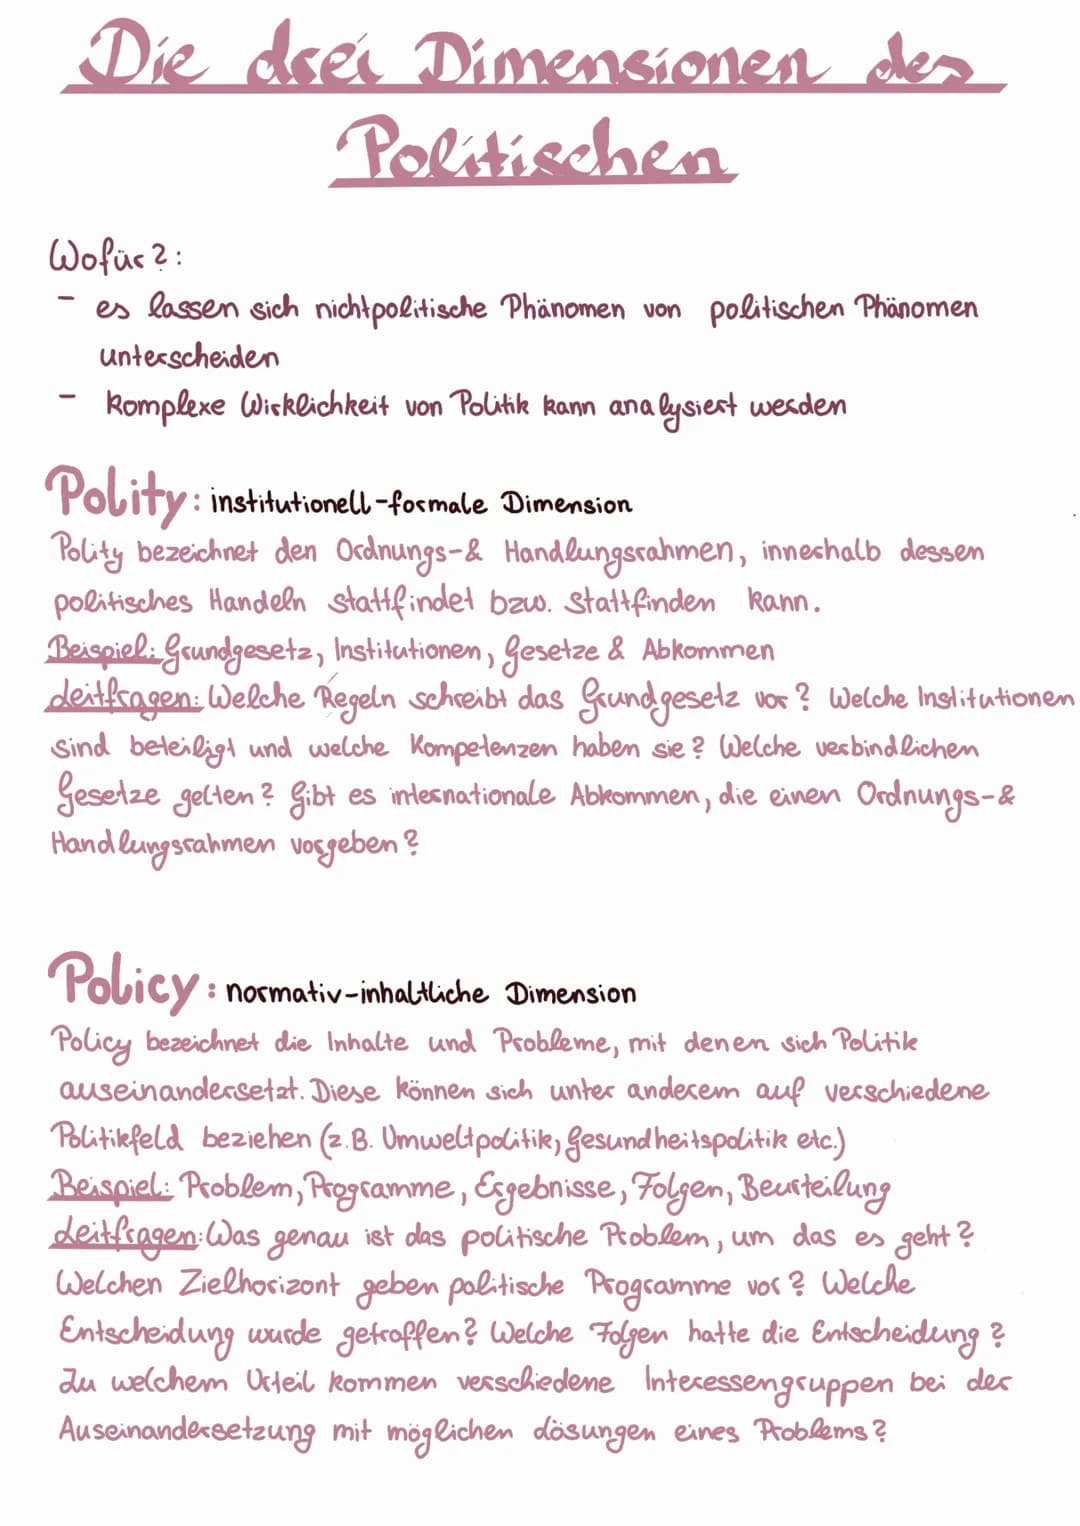 Die drei Dimensionen des
Politischen
Wofür?:
- es lassen sich nichtpolitische Phänomen von politischen Phänomen
unterscheiden
- komplexe Wirklichkeit von Politik kann analysiert werden
Polity: institutionell-formale Dimension
Polity bezeichnet den Ordnungs-& Handlungsrahmen, innerhalb dessen
politisches Handeln stattfindet bzw. stattfinden kann.
Beispiel: Grundgesetz, Institutionen, Gesetze & Abkommen
Leitfragen: Welche Regeln schreibt das Grundgesetz vor? Welche Institutionen
sind beteiligt und welche Kompetenzen haben sie? Welche verbindlichen
Gesetze gelten? Gibt es internationale Abkommen, die einen Ordnungs-&
Handlungsrahmen vorgeben?
Policy: normativ-inhaltliche Dimension
Policy bezeichnet die Inhalte und Probleme, mit denen sich Politik
auseinandersetzt. Diese können sich unter anderem auf verschiedene
Politikfeld beziehen (z.B. Umweltpolitik, Gesundheitspolitik etc.)
Beispiel: Problem, Programme, Ergebnisse, Folgen, Beurteilung
Leitfragen: Was genau ist das politische Problem, um das es geht?
Welchen Zielhorizont geben politische Programme vor? Welche
Entscheidung wurde getroffen? Welche Folgen hatte die Entscheidung?
Zu welchem Urteil kommen verschiedene Interessengruppen bei der
Auseinandersetzung mit möglichen Lösungen eines Problems?